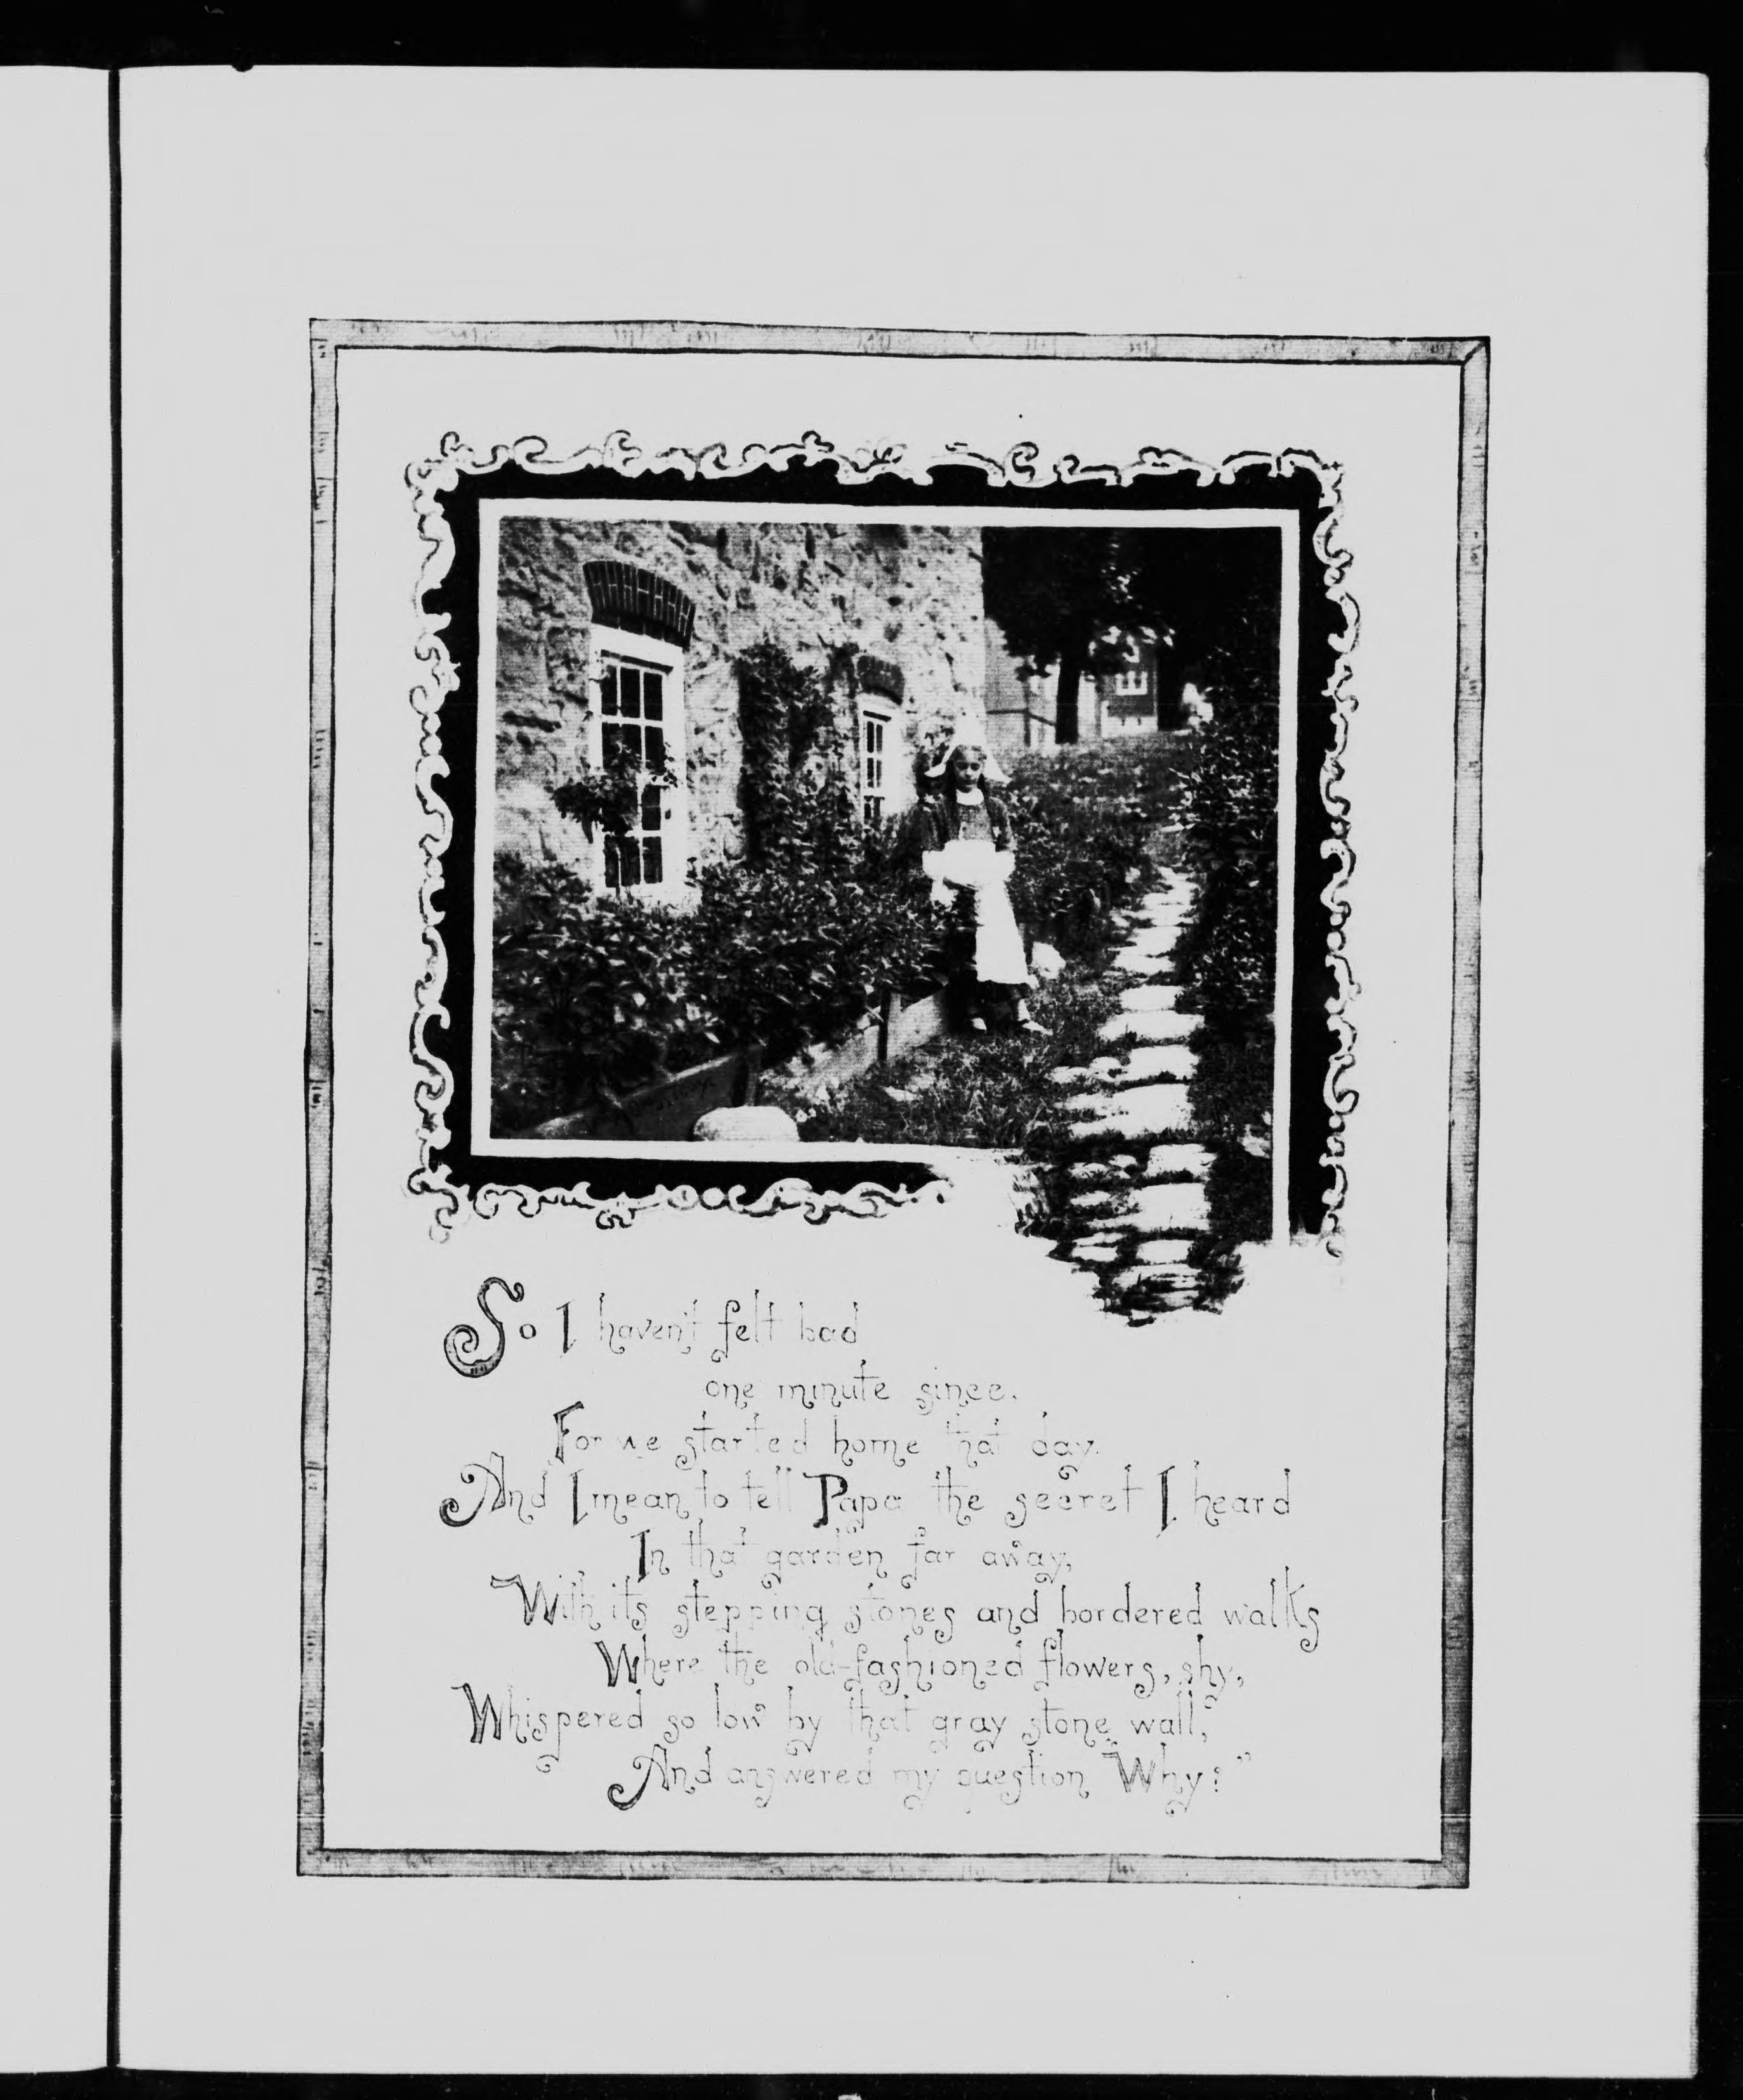 So I haven't felt bad
one minute since.
For we started home that day.
And I mean to tell Papa the secret I heard
In that garden far away,
With its stepping stones and bordered walks
Where the old-fashioned flowers, shy,
Whispered so low by that gray stone wall,
And answered my question "Why?"